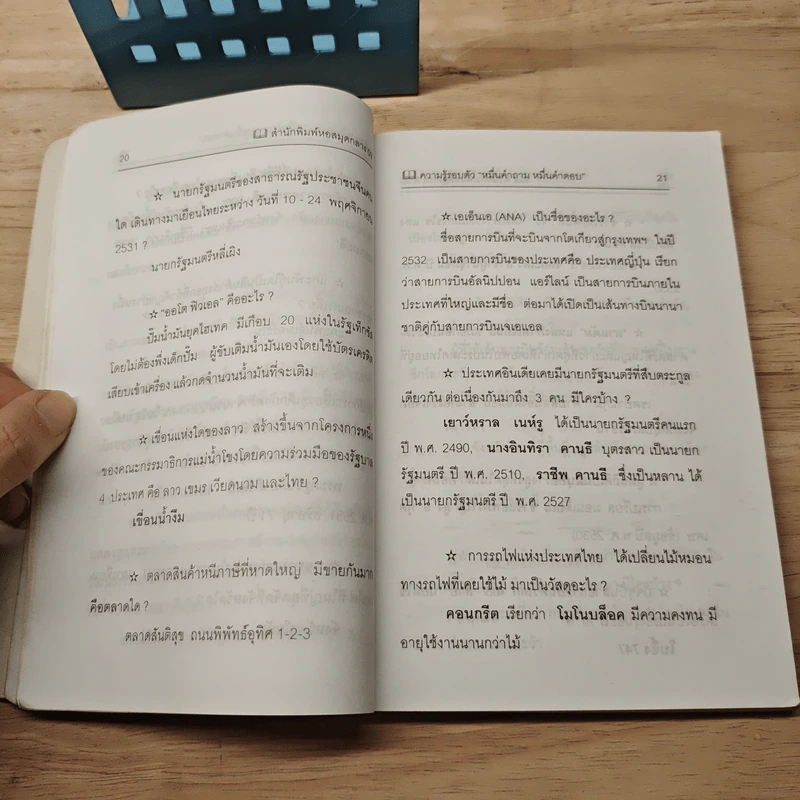 20
สำนักพิมพ์หอสมุดกลาง
☆ นายกรัฐมนตรีของสาธารณรัฐประชาชนจีนคน
ใด เดินทางมาเยือนไทยระหว่าง วันที่ 10 - 24 พฤศจิกายน
2531 ?
นายกรัฐมนตรีหลี่เผิง
☆ "ออโต ฟิวเอล" คืออะไร ?
ปั๊มน้ำมันยุคไฮเทค มีเกือบ 20 แห่งในรัฐเท็กซัส
โดยไม่ต้องพึ่งเด็กปั๊ม ผู้ขับเติมน้ำมันเองโดยใช้บัตรเครดิต
เสียบเข้าเครื่อง แล้วกดจำนวนน้ำมันที่จะเติม
☆ เขื่อนแห่งใดของลาว สร้างขึ้นจากโครงการหนึ่ง
ของคณะกรรมาธิการแม่น้ำโขงโดยความร่วมมือของรัฐบาล
4 ประเทศ คือ ลาว เขมร เวียดนาม และไทย ?
เขื่อนน้ำงึม
☆ ตลาดสินค้าหนีภาษีที่หาดใหญ่ มีขายกันมาก
คือตลาดใด ?
ตลาดสันติสุข ถนนนิพัทธ์อุทิศ 1-2-3
ความรู้รอบตัว "หมื่นคำถาม หมื่นคำตอบ"
21
☆ เอเอ็นเอ (ANA) เป็นชื่อของอะไร ?
ชื่อสายการบินที่จะบินจากโตเกียวสู่กรุงเทพฯ ในปี
2532 เป็นสายการบินของประเทศคือ ประเทศญี่ปุ่น เรียก
ว่าสายการบินอัลนิปปอน แอร์ไลน์ เป็นสายการบินภายใน
ประเทศที่ใหญ่และมีชื่อ ต่อมาได้เปิดเป็นเส้นทางบินนานา
ชาติคู่กับสายการบินเจเอแอล
☆ ประเทศอินเดียเคยมีนายกรัฐมนตรีที่สืบตระกูล
เดียวกัน ต่อเนื่องกันมาถึง 3 คน มีใครบ้าง ?
เยาว์หราล เนห์รู ได้เป็นนายกรัฐมนตรีคนแรก
ปี พ.ศ. 2490, นางอินทิรา คานธี บุตรสาว เป็นนายก
รัฐมนตรี ปี พ.ศ. 2510, ราชีพ คานธี ซึ่งเป็นหลาน ได้
เป็นนายกรัฐมนตรี ปี พ.ศ. 2527
☆ การรถไฟแห่งประเทศไทย ได้เปลี่ยนไม้หมอน
ทางรถไฟที่เคยใช้ไม้ มาเป็นวัสดุอะไร ?
คอนกรีต เรียกว่า โมโนบล็อค มีความคงทน มี
อายุใช้งานนานกว่าไม้